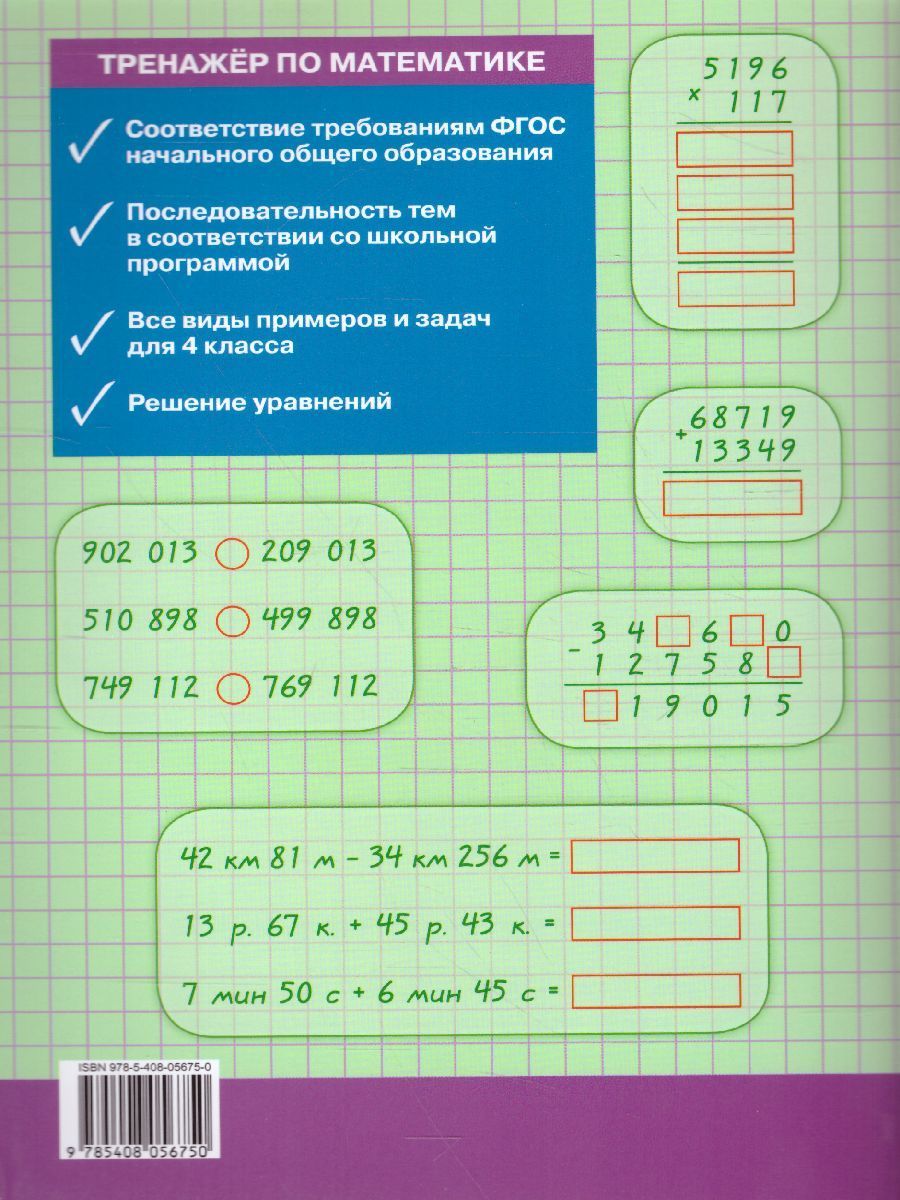 ТРЕНАЖЁР ПО МАТЕМАТИКЕ
Соответствие требованиям ФГОС
начального общего образования
Последовательность тем
в соответствии со школьной
программой
Все виды примеров и задач
для 4 класса
Решение уравнений
5196
× 117
68719
+ 13349
902 013 209 013
510 898 499 898
749 112 769 112
- 3 4 6 0
1 2 7 5 8
1 9 0 1 5
42 км 81 м - 34 км 256 м =
13 р. 67 к. + 45 р. 43 к. =
7 мин 50 с + 6 мин 45 с =
ISBN 978-5-408-05675-0
9 785408 056750